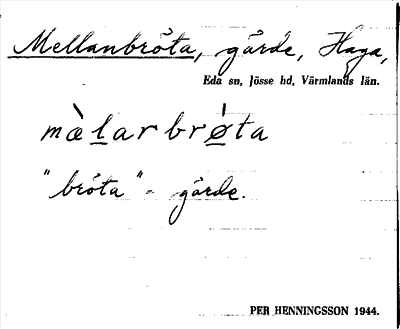 Mellanbröta, gärde, Haga,
Eda sn, Jösse hd, Värmlands län.
mὲlarbrø̀ta
"bröta" = gärde.
PER HENNINGSSON 1944.